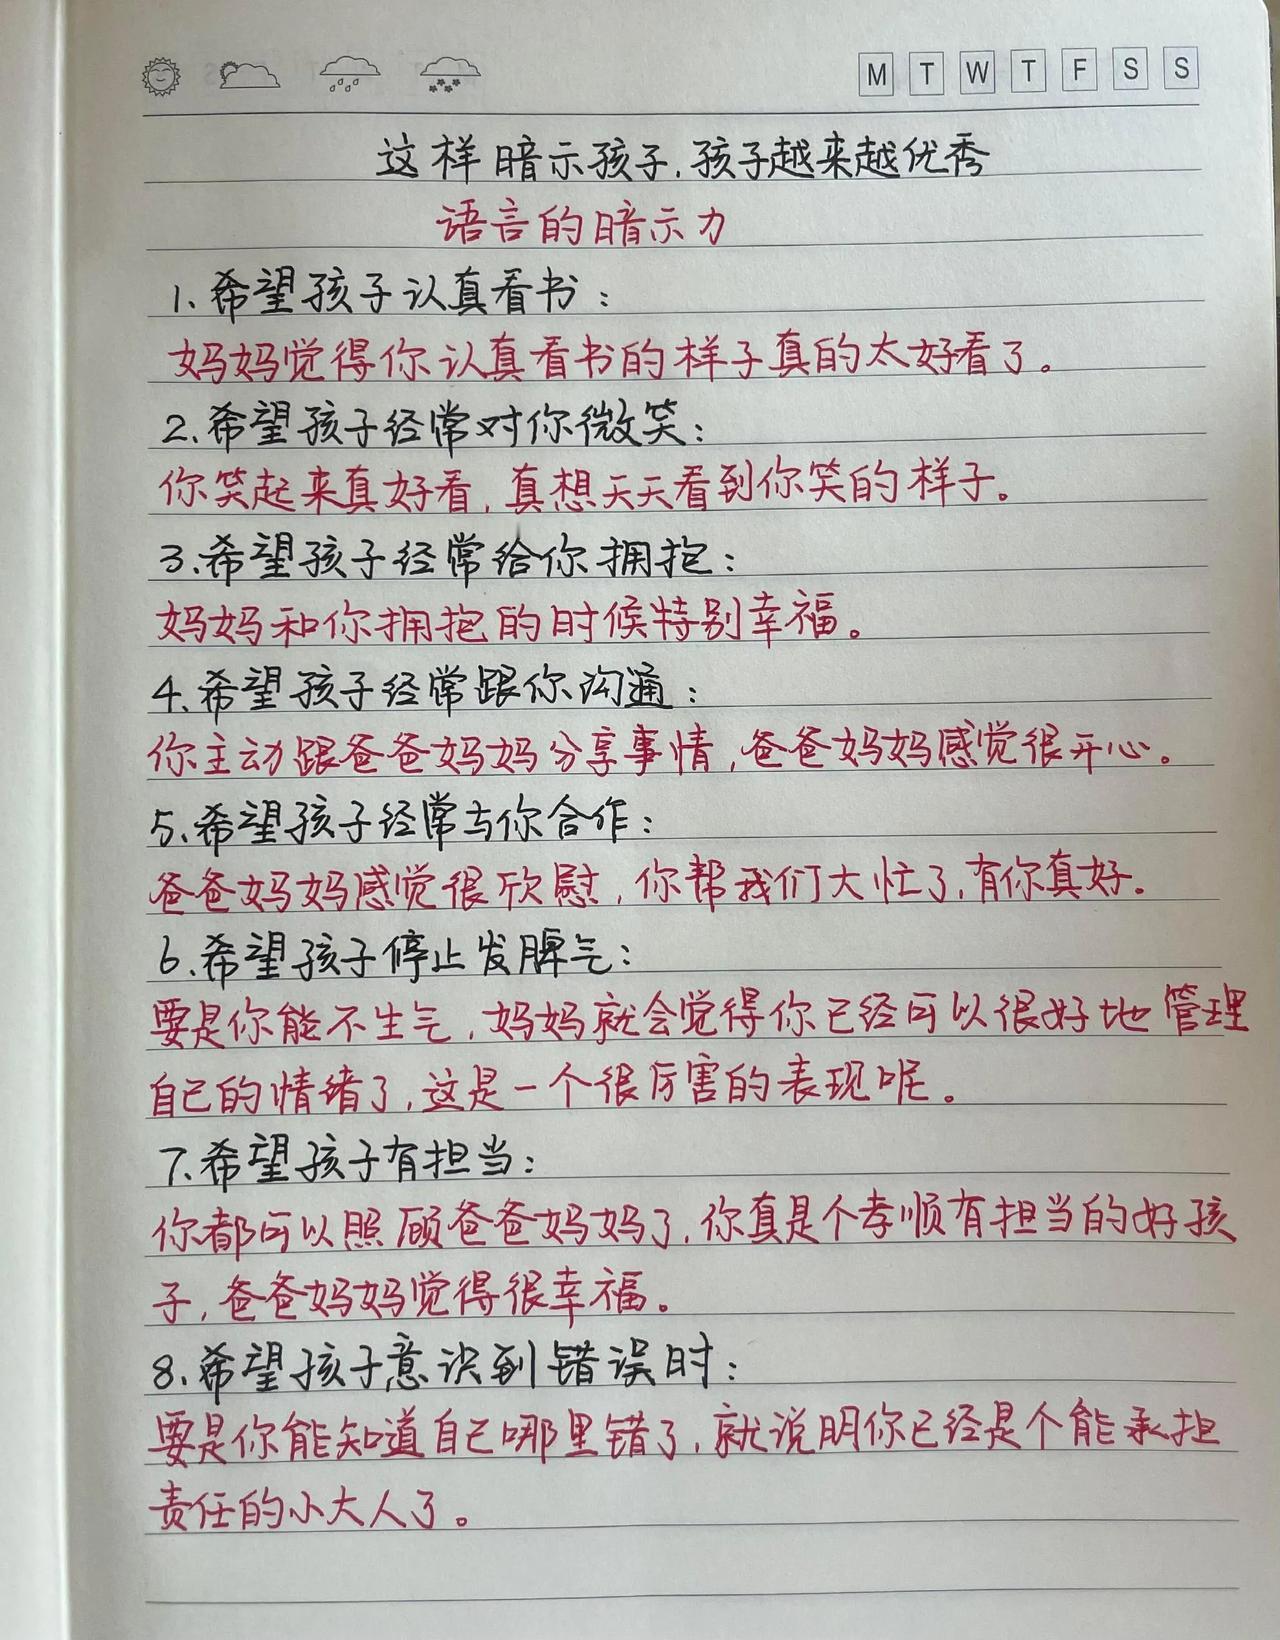 M T W T F S S
这样暗示孩子,孩子越来越优秀
语言的暗示力
1.希望孩子认真看书:
妈妈觉得你认真看书的样子真的太好看了。
2.希望孩子经常对你微笑:
你笑起来真好看,真想天天看到你笑的样子。
3.希望孩子经常给你拥抱:
妈妈和你拥抱的时候特别幸福。
4.希望孩子经常跟你沟通:
你主动跟爸爸妈妈分享事情,爸爸妈妈感觉很开心。
5.希望孩子经常与你合作:
爸爸妈妈感觉很欣慰,你帮我们大忙了,有你真好.
6.希望孩子停止发脾气:
要是你能不生气,妈妈就会觉得你已经可以很好地管理
自己的情绪了,这是一个很厉害的表现呢。
7.希望孩子有担当:
你都可以照顾爸爸妈妈了,你真是个孝顺有担当的好孩
子,爸爸妈妈觉得很幸福。
8.希望孩子意识到错误时:
要是你能知道自己哪里错了,就说明你已经是个能承担
责任的小大人了。